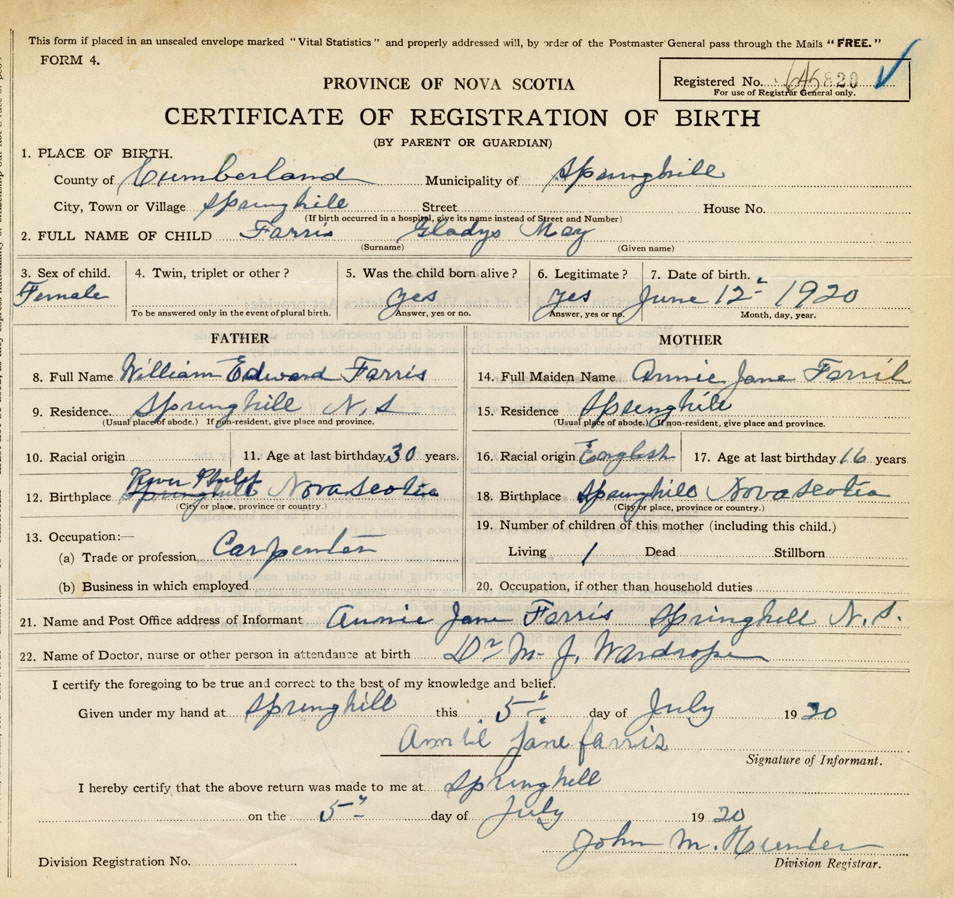 This form if placed in an unsealed envelope marked "Vital Statistics" and properly addressed will, by order of the Postmaster General pass through the Mails "FREE."
FORM 4.
PROVINCE OF NOVA SCOTIA
Registered No. 820
For use of Registrar General only.
CERTIFICATE OF REGISTRATION OF BIRTH
(BY PARENT OR GUARDIAN)
1. PLACE OF BIRTH.
County of Cumberland Municipality of Springhill
City, Town or Village Springhill Street House No.
(If birth occurred in a hospital, give its name instead of Street and Number)
2. FULL NAME OF CHILD Farris Gladys May
(Surname) (Given name)
3. Sex of child. 4. Twin, triplet or other? 5. Was the child born alive? 6. Legitimate? 7. Date of birth.
Female yes yes June 12 1920
To be answered only in the event of plural birth. Answer, yes or no. Answer, yes or no. Month, day, year.
FATHER MOTHER
8. Full Name William Edward Farris 14. Full Maiden Name Annie Jane
9. Residence. Springhill N.S 15. Residence Springhill
(Usual place of abode.) If non-resident, give place and province. (Usual place of abode.) If non-resident, give place and province.
10. Racial origin 11. Age at last birthday 30 years. 16. Racial origin English 17. Age at last birthday 16 years
River Philip
12. Birthplace Springhill Nova Scotia 18. Birthplace Springhill Nova Scotia
(City or place, province or country.) (City or place, province or country.)
19. Number of children of this mother (including this child.)
13. Occupation:—
(a) Trade or profession Carpenter Living 1 Dead Stillborn
(b) Business in which employed 20. Occupation, if other than household duties
21. Name and Post Office address of Informant Annie Jane Farris Springhill N.S.
22. Name of Doctor, nurse or other person in attendance at birth Dr M. J. Wardrope
I certify the foregoing to be true and correct to the best of my knowledge and belief.
Given under my hand at Springhill this 5 day of July 1920
Jane farris
Signature of Informant.
I hereby certify that the above return was made to me at Springhill
on the 5 day of July 1920
John M. Hunter
Division Registration No. Division Registrar.